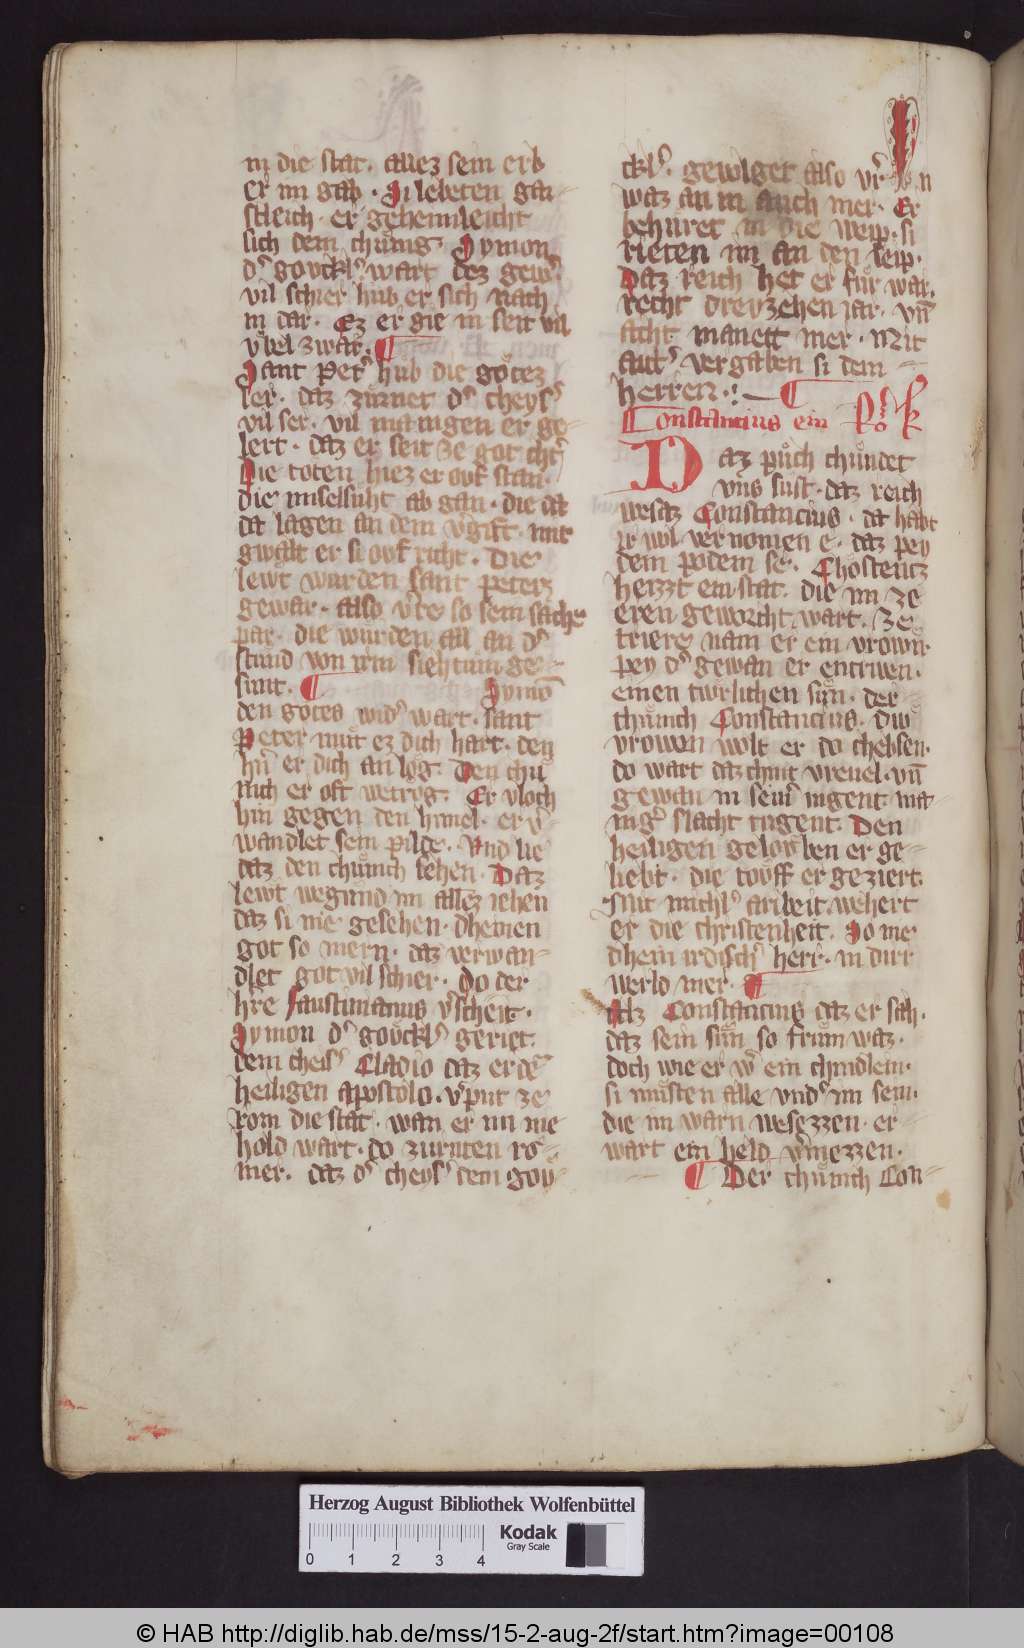 in die stat. allez sein erb
er im gab. Si lebeten gai-
stleich. er geheimleicht
sich dem chunig Symon
d goukl wart dez gewͤ
vil schier hub er sich nach
in dar. Ez er gie in seit vil
vbel zwar. ¶
Sant Pet hub die gotez
ler. daz zurnet d cheys
vil ser. vil manigen er ge-
lert. daz er seit ze got chͤt
Die toten hiez er ouf stan.
die miselsuht ab gan. die da
da lagen an dem vgift. mit
gwalt er si ouf richt. Die
lewt wurden sant Peterz
gewar. also vͤte so sein sache
par. die wurden all an d
stund von irm siehtum ge-
sunt. ¶ Symō
den gotes wid wart. sant
Peter mut ez dich hart. den
hͤn er dich an log. Den chu
nich er oft wetrog. Er vloch
hin gegen den himel. er v
wandlet sein pilde. Und lie
daz den chunich sehen. Daz
lewt wegund im allez iehen
daz si nie gesehen. dheinen
got so mern. daz verwan-
dlet got vil schier. Do der
hͤre Faustinianus vscheit.
Symon d goukl geriet.
dem cheis Cladio daz er dē
heiligen apostolo. vput ze
Rom die stat. wan er im nie
hold wart. do zurnten ro-
mer. daz d cheys dem gou-
ckl. gewlget also vͤr
waz an in auch mer. Er
behuret in die weip. si
rieten im an den leip.
Daz reich het er fur war.
recht dreyzehen iar. vn̄
acht manett mer. Mit
ait vergaben si dem
herren. ¶
Constancius ein
Daz puch chundet
vns sust. daz reich
wesatz Constancius. da habt
ir wol vernomen e. daz pey
dem podem se. Chostentz
heizzt ein stat. die im ze
eren geworcht wart. Ze
triere nam er ein vrown.
pey d gewan er entriwen.
einen twrlichen sun. der
chunch Constancius. Diw
vrowen wolt er do chebsen.
do wart daz chint vreuel. vn̄
gewan in sein iugent ma
nig slacht tugent. Den
heiligen gelouben er ge-
liebt. die touff er geziert.
Mit michl aribeit wehert
er die christenheit. So nie
dhein irdisch herr. in dirr
werld mer. ¶
Alz Constancius daz er sah.
daz sein sun so frum waz.
doch wie er wͤ ein chindlein.
si musten alle vnd im sein.
die im warn wesezzen. er
wart ein held vmezzen.
¶ Der chunich Con-
Herzog August Bibliothek Wolfenbüttel
Kodak
Gray Scale
0 1 2 3 4
© HAB http://diglib.hab.de/mss/15-2-aug-2f/start.htm?image=00108